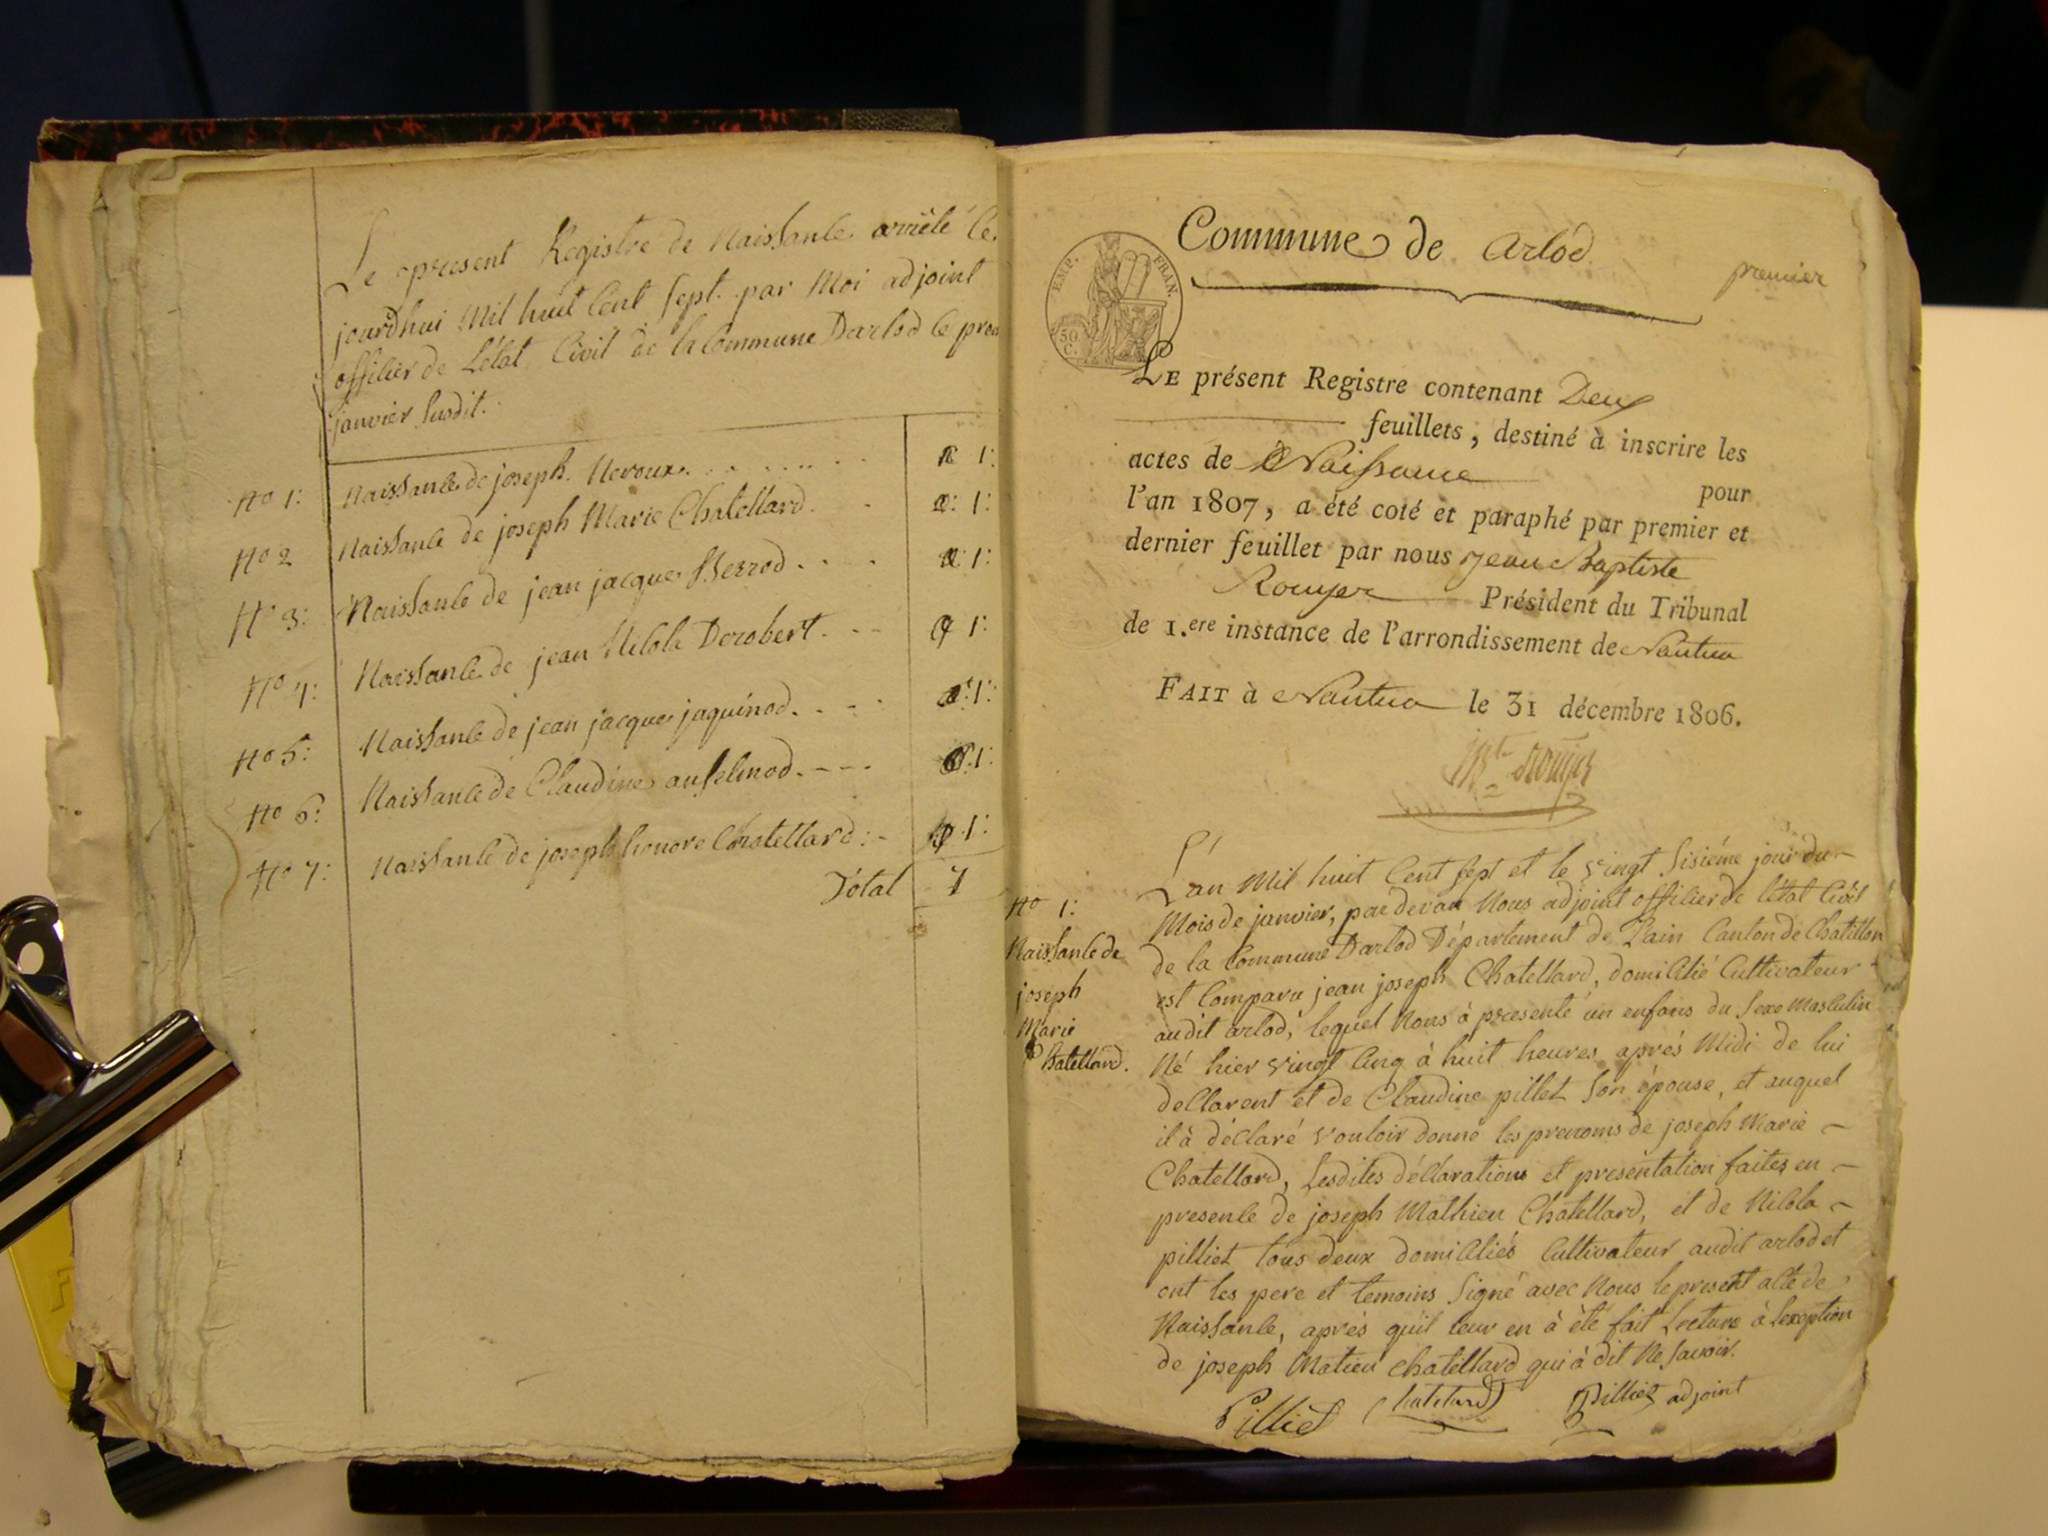 Le present Registre de Naissance arrêté ce
jourdhui Mil huit Cent Sept. par Moi adjoint
officier de Létat Civil de la Commune Darlod le
janvier Susdit.
No 1: Naissance de joseph. Neroux. 1:
No 2 Naissance de joseph Marie Chatellard. 1:
No 3: Naissance de jean jacques 1:
No 4: Naissance de jean Nicola Derobert. 1:
No 5: Naissance de jean jacques jaquinod. 1:
No 6: Naissance de Claudine anselmod. 1:
No 7: Naissance de joseph honore Chatellard: 1:
Total 7
Commune de arlod
premier
EMP. FRAN.
50
C.
LE présent Registre contenant Deux
feuillets, destiné à inscrire les
actes de Naissance pour
l'an 1807, a été coté et paraphé par premier et
dernier feuillet par nous Jean Baptiste
Rouyer Président du Tribunal
de 1.ere instance de l'arrondissement de Nantua
FAIT à Nantua le 31 décembre 1806.
Rouyer
No 1:
Naissance de
joseph
Marie
Chatellard.
L'an Mil huit Cent Sept et le vingt Sisiéme jour du
Mois de janvier, pardevan Nous adjoint officier de létat Civil
de la Commune Darlod Département de Lain Canton de Chatillon
est Comparu jean joseph Chatellard, domicilié Cultivateur
audit arlod, lequel Nous à presenté un enfans du Sexe Masculin
Né hier vingt Cinq à huit heures aprés Midi de lui
declarent et de Claudine pillet Son épouse, et auquel
il à déclaré vouloir donné les prenoms de joseph Marie
Chatellard, Lesdites déclarations et presentation faites en
presence de joseph Mathieu Chatellard, et de Nicola
pilliet tous deux domiciliés Cultivateur audit arlod et
ont les pere et temoins Signé avec Nous le present acte de
Naissance, aprés quil leur en à été fait Lecture à lexeption
de joseph Matieu chatellard qui à dit Ne Savoir.
Pilliet Chatelard Pilliet adjoint